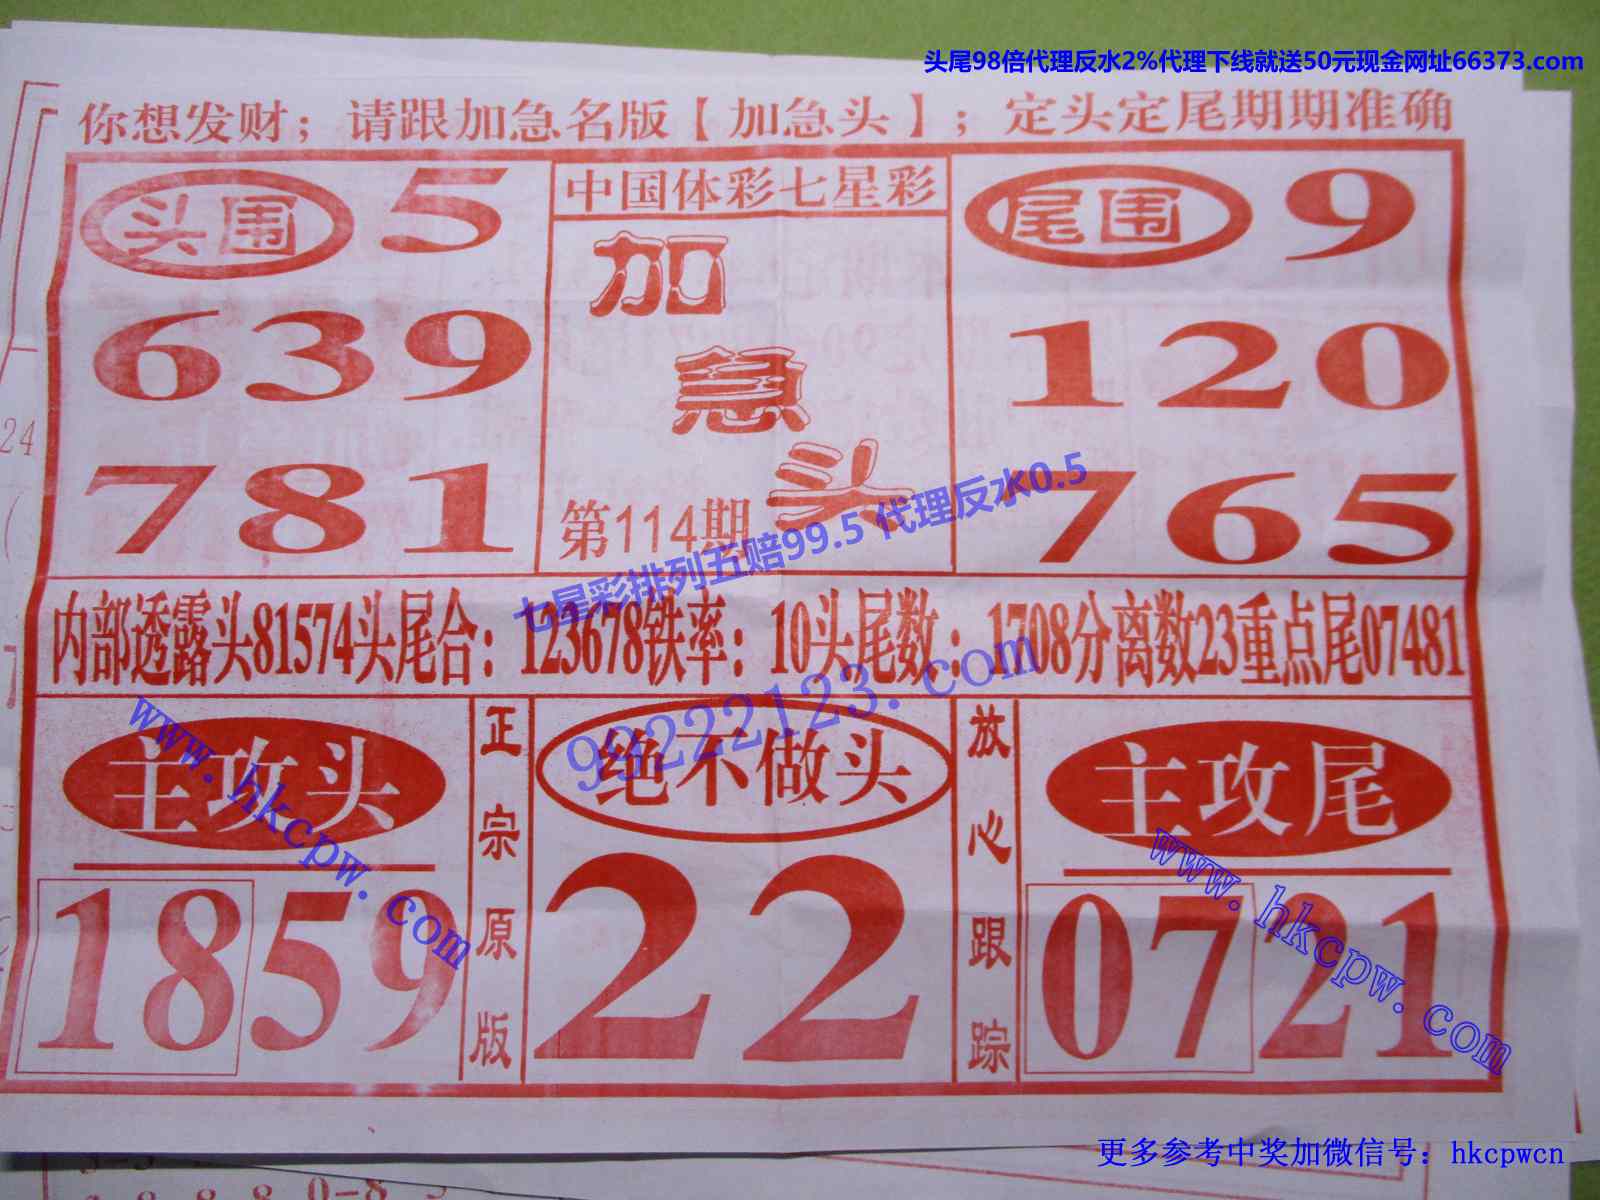 头尾98倍代理反水2%代理下线就送50元现金网址66373.com
你想发财；请跟加急名版【加急头】；定头定尾期期准确
头围 5
639
781
中国体彩七星彩
加急头
第114期
尾围 9
120
765
七星彩排列五赔99.5 代理反水0.5
内部透露头81574头尾合：123678铁率：10头尾数：1708分离数23重点尾07481
99222123.com
主攻头
1859
www.hkcpw.com
正宗原版
绝不做头
22
放心跟踪
主攻尾
0721
www.hkcpw.com
更多参考中奖加微信号：hkcpwcn
24